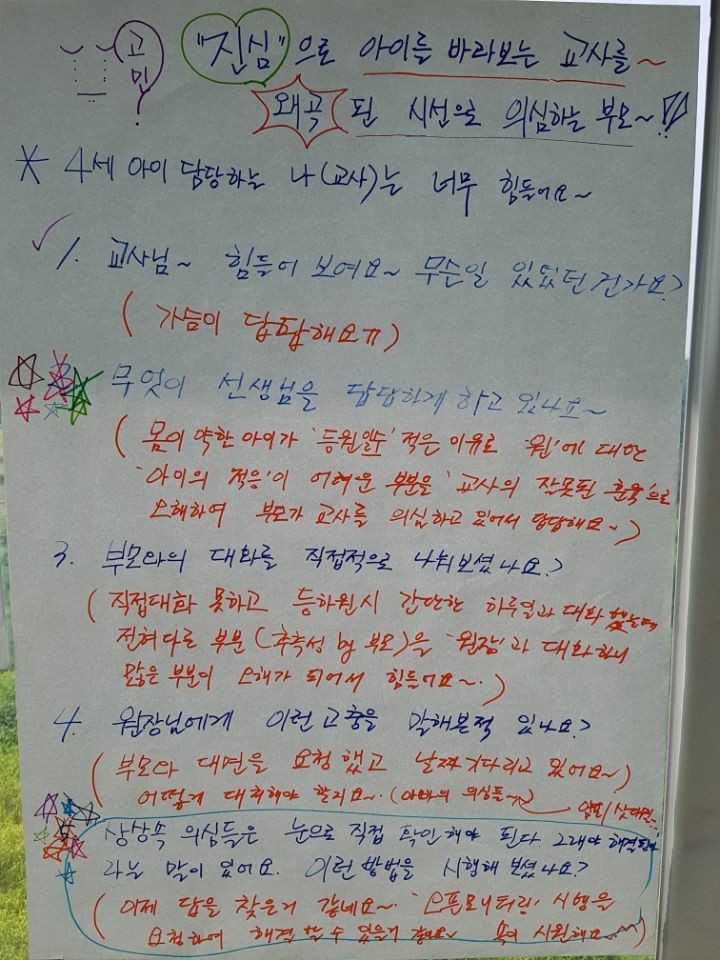 고민?
"진심"으로 아이를 바라보는 교사를~
왜곡된 시선으로 의심하는 부모~!!
* 4세 아이 담당하는 나(교사)는 너무 힘들어요~
✓ 1. 교사님~ 힘들어 보여요~ 무슨일 있었던건가요?
(가슴이 답답해요ㅠ)
무엇이 선생님을 답답하게 하고 있나요~
(몸이 약한 아이가 '등원일수' 적은 이유로 '원'에 대한
'아이의 적응'이 어려운 부분을 '교사의 잘못된 훈육'으로
오해하여 부모가 교사를 의심하고 있어서 답답해요~)
3. 부모와의 대화를 직접적으로 나눠보셨나요?
(직접대화 못하고 등하원시 간단한 하루일과 대화 했는데
전혀다른 부분(추측성 by 부모)을 '원장'과 대화하니
많은 부분이 오해가 되어서 힘들어요~.)
4. 원장님에게 이런 고충을 말해본적 있나요?
(부모와 대면을 요청했고 날짜 기다리고 있어요~)
어떻게 대처해야 할지요~. (아빠의 의심들~)
상상속 의심들은 눈으로 직접 확인해야 된다. 그래야 해결된다
라는 말이 있어요. 이런 방법을 시행해 보셨나요?
(이제 답을 찾은거 같네요~ '오픈모니터링' 시행을
요청하여 해결할 수 있을거 같네요~ 속이 시원해요~)